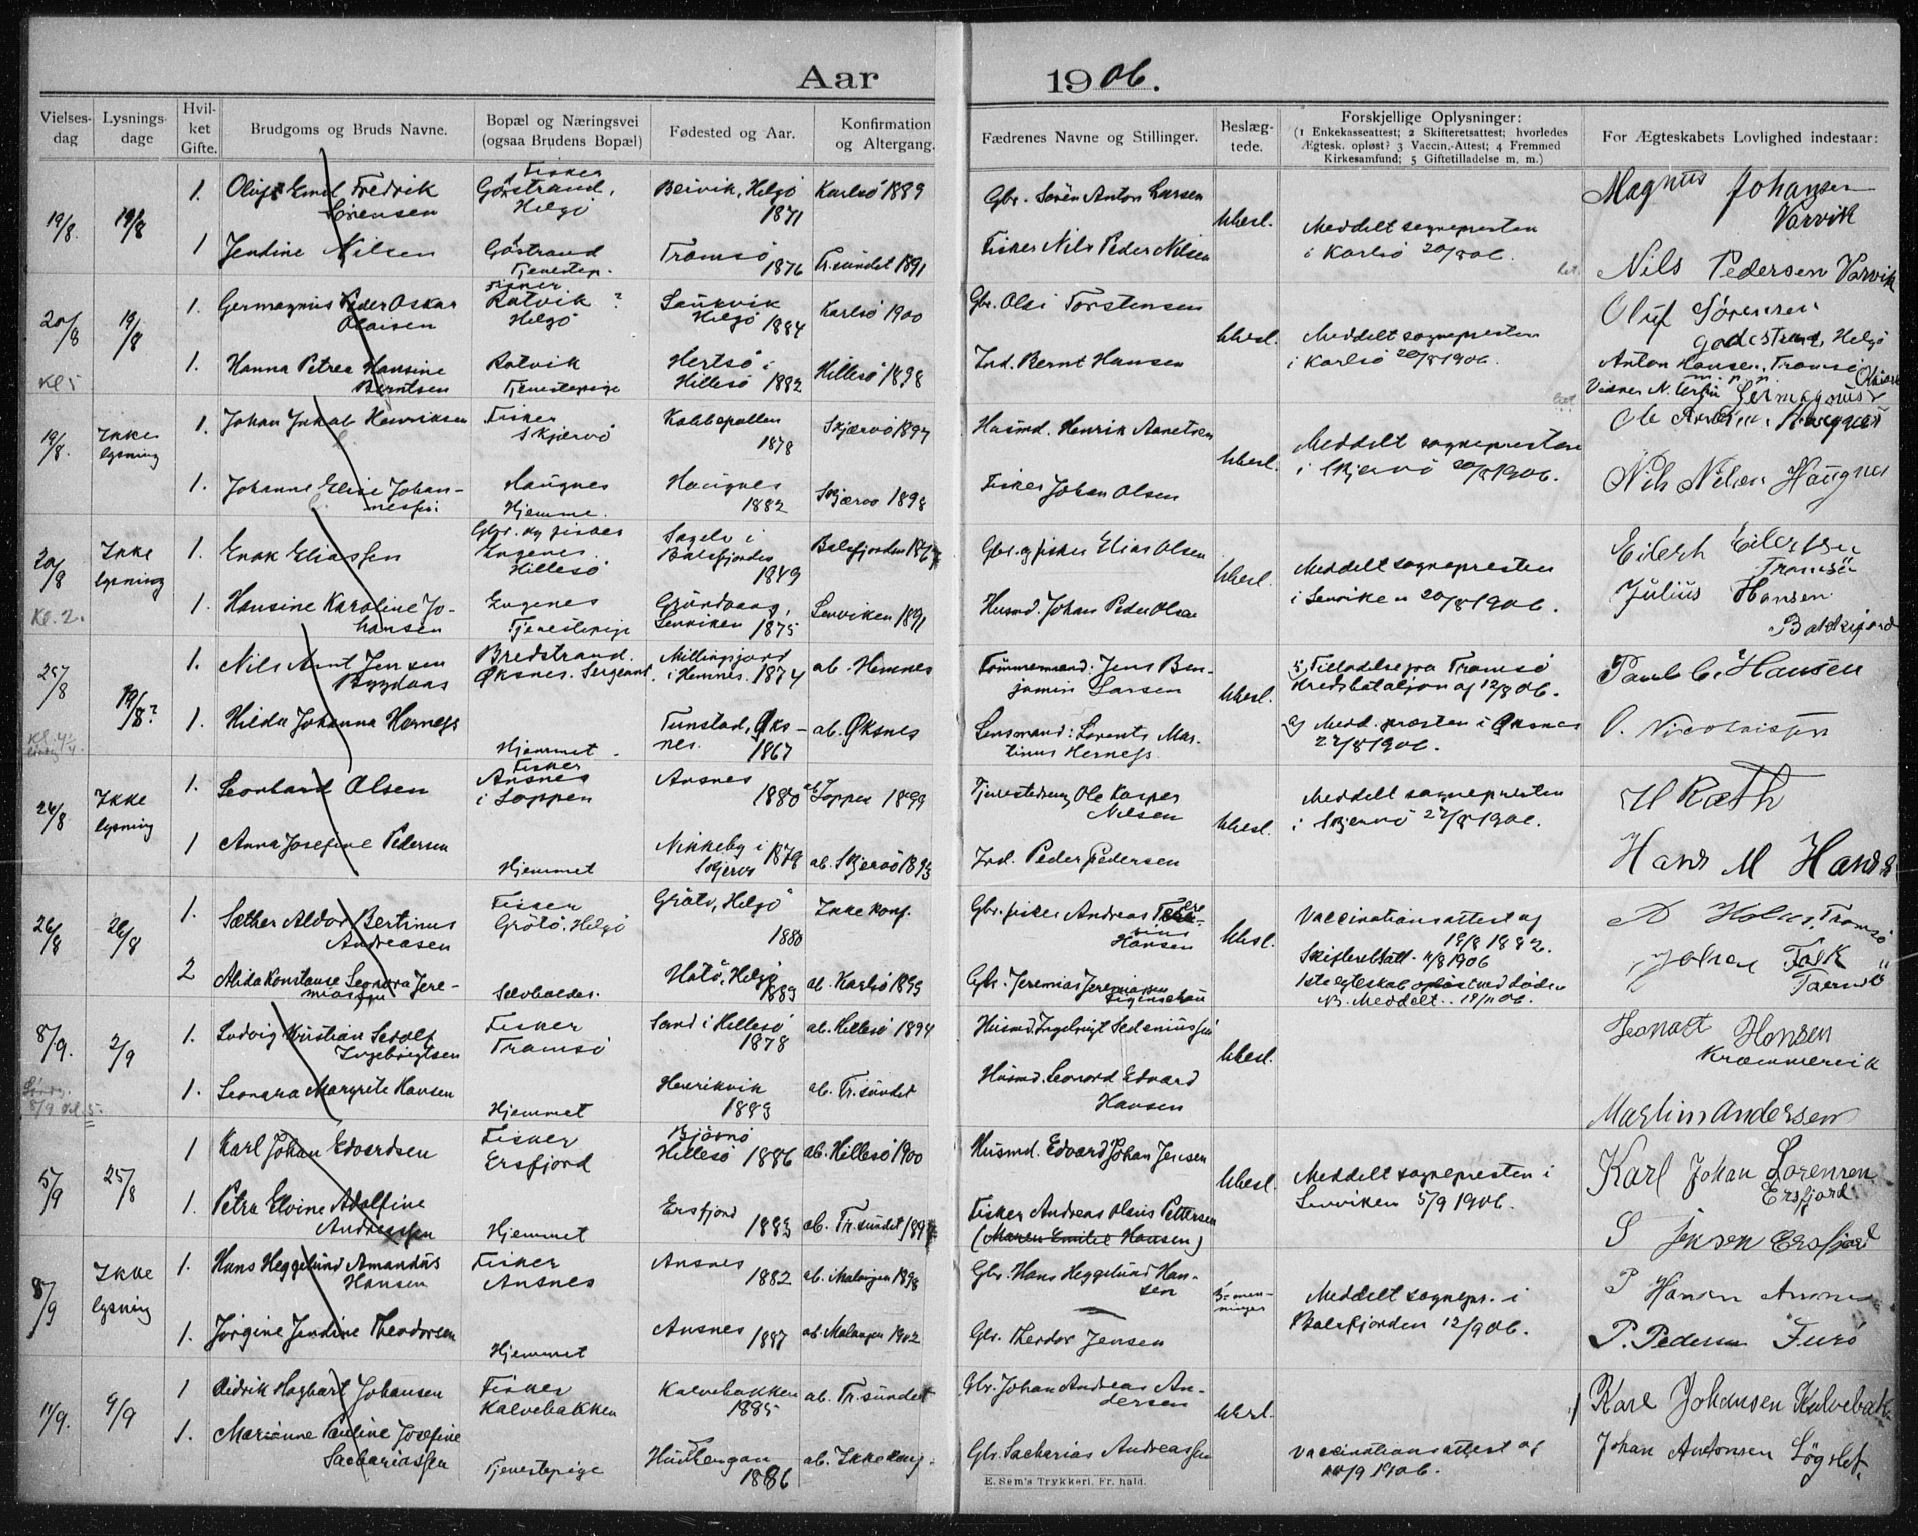 Aar 1906.
Vielses-dag
Lysnings-dage
Hvil-ket Gifte.
Brudgoms og Bruds Navne.
Bopæl og Næringsvei (ogsaa Brudens Bopæl)
Fødested og Aar.
Konfirmation og Altergang.
Fædrenes Navne og Stillinger.
Beslæg-tede.
Forskjellige Oplysninger:
(1 Enkekasseattest; 2 Skifteretsattest; hvorledes Ægtesk. opløst? 3 Vaccin.-Attest; 4 Fremmed Kirkesamfund; 5 Giftetilladelse m. m.)
For Ægteskabets Lovlighed indestaar:
19/8. 19/8
1. Emil Fredrik Sørensen
Fisker Helgö
Helgö 1871
Karlsö 1889
Gbr. Sören Anton Larsen
Ubesl.
Meddelt sognepresten i Karlsö 20/8 06.
Magnus Johansen Varvik
1 Jendine Nilsen
Tjenestep.
Tromsö 1876
Tr.sundet 1891
Fisker Nils Peder Nilsen
Nils Pedersen Varvik
20/8 19/8
Kl 5
1. Germagnus Peder Oskar Olaisen
Fisker Ratvik ? Helgö
Helgö 1884
Karlsö 1900
Gbr. Olai Torstensen
Ubesl.
Meddelt sognepresten i Karlsö 20/8 1906.
Oluf Sörensen Helgö
1. Hanna Petrea Hansine Berntsen
Ratvik Tjenestepige
Hertsö i Hillesö 1882
Hillesö 1898
Ind. Bernt Hansen
Anton Hansen, Tromsö
19/8. Ikke lysning
1. Johan Jakob Henriksen
Fisker Skjærvö
1878
Skjærvö 1894
Husmd. Henrik
Ubesl.
Meddelt sognepresten i Skjervö 20/8 1906.
1. Johanne Elise Johannessen
Haugnes Hjemme.
Haugnes 1882
Skjærvö 1898
Fisker Johan Olsen
Nils Nilsen Haugnes
20/8 Ikke lysning
Kl. 2.
1. Enok Eliassen
Gbr. og fisker Hillesö
Balsfjorden 1849
Balsfjorden
Gbr. og fisker Elias Olsen
Ubesl.
Meddelt sognepresten i Lenviken 20/8 1906.
Tromsö
1. Hansine Karoline Johansen
Tjenestepige
Lenviken 1875
Lenviken 1891
Husmd. Johan Peder Olsen
Julius Hansen
25/8 19/8?
1. Nils Arnt Jensen
Bredstrand. Øksnes. Sergeant.
i Hemnes. 1874
ab. Hemnes
Tømmermand. Jens Benjamin Larsen
Ubesl.
5, Tilladelse fra Tromsö Kredsbataljon af 12/8 06.
Hansen
1. Hilda Johanna Herness
Hjemmet.
Tunstad, Øksnes. 1867
ab. Øksnes
Lensmand: Lorents Martinus Herness.
Medd. presten i Øksnes 27/8 1906.
26/8 Ikke lysning
1. Leonhard Olsen
Fisker Ansnes i Loppen
Ansnes 1880
Loppen 1899
Ole Kasper Nilsen
Ubesl.
Meddelt sognepresten i Skjervö 27/8 1906.
H Ræth
1 Anna Josefine Pedersen
Hjemmet
Nikkeby i Skjervö 1878
ab. Skjervö 1893
Ind. Peder Pedersen
Hans M Hansen
26/8 26/8
1. Sæther Aldor Bertinus Andreasen
Fisker Grötö, Helgö
Grötö, Helgö 1880
Ikke konf.
Gbr. fisker Andreas Hansen
Ubesl.
Vaccinationsattest af 19/8 1882.
Skifteretsatt. 11/8 1906
Tromsö
2 Alida Konstanse Leonora Jeremiassen
Selvholdes.
Helgö 1883
ab. Karlsö 1899
Gbr. Jeremias Jeremiassen
8/9. 2/9
1. Ludvig Kristian Sedolf Ingebrigtsen
Fisker Tromsö
Sand i Hillesö 1878
ab. Hillesö 1894
Husmd. Ingebrigt Sedeniussen
Ubesl.
Hansen
1. Leonora Margrete Hansen
Hjemmet
Henrikvik 1883
ab. Tr.sundet
Husmd. Leonard Edvard Hansen
Martin Andersen
5/9 25/8
1 Karl Johan Edvardsen
Fisker Ersfjord
Hillesö 1886
ab. Hillesö 1900
Husmd. Edvard Johan Jensen
Ubesl.
Meddelt sognepresten i Lenviken 5/9 1906.
Karl Johan Lorensen Ersfjord
1. Petra Elvine Adolfine Andreassen
Hjemmet
Ersfjord 1883
ab. Tr.sundet
Fisker Andreas Olaus Pettersen (Maren Emilie Hansen)
S Jensen Ersfjord
8/9 Ikke lysning
1. Hans Heggelund Amandus Hansen
Fisker Ansnes
Ansnes 1882
ab. Malangen 1898
Gbr. Hans Heggelund Hansen
Meddelt sognepr. i Balsfjorden 12/9 06.
P Hansen
1. Jörgine Jendine Theodorsen
Hjemmet
Ansnes 1887
ab. Malangen 1902
Gbr. Theodor Jensen
P. Pedersen
11/9. 9/9
1 Didrik Hagbart Johansen
Fisker Kalvebakken
Kalvebakken 1885
ab. Tr.sundet
Gbr. Johan Andreas Andersen
Ubesl.
Karl Johansen
1. Marianne Pauline Josefine Sachariassen
Tjenestepige
1886
ab. Ikke konf.
Gbr. Sacharias Andreassen
Vaccinationsattest af 10/9 1906.
Johan Antonsen
E. Sem's Trykkeri. Fr.hald.